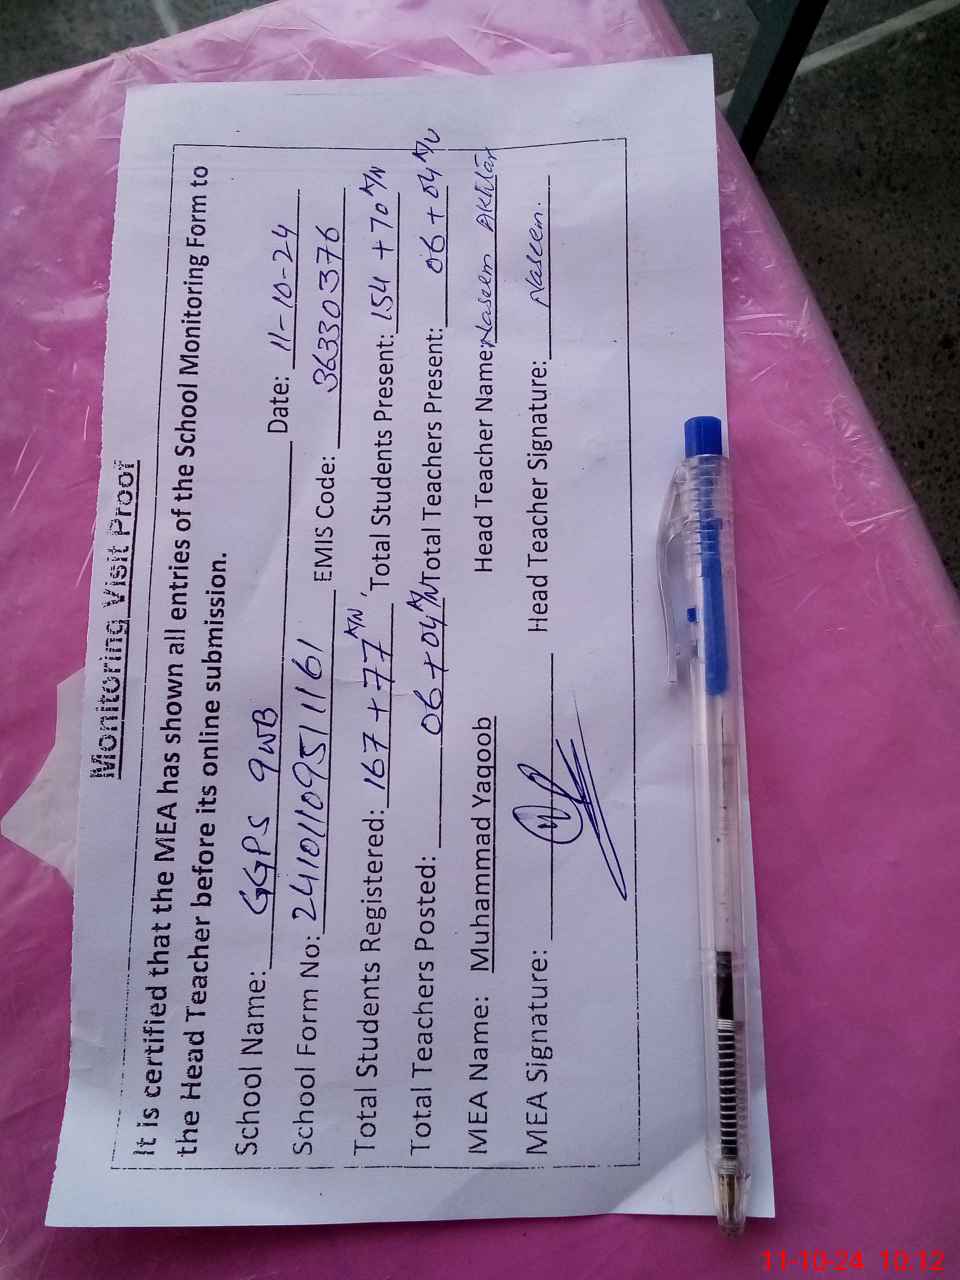 Monitoring Visit Proof
It is certified that the MEA has shown all entries of the School Monitoring Form to
the Head Teacher before its online submission.
School Name: GGPS 9WB Date: 11-10-24
School Form No: 241011095111161 EMIS Code: 36330376
Total Students Registered: 167 + 77 A/N, Total Students Present: 154 + 70 A/N
Total Teachers Posted: 06 + 04 A/N Total Teachers Present: 06 + 04 A/N
MEA Name: Muhammad Yaqoob Head Teacher Name: Naseem Akhtar
MEA Signature: Head Teacher Signature: Naseem.
11-10-24 10:12